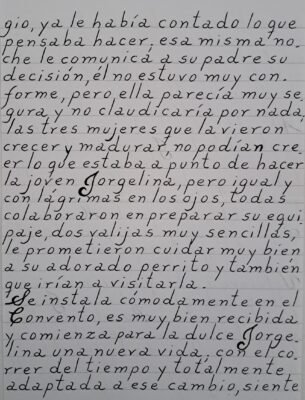 gio, ya le había contado lo que
pensaba hacer, esa misma no.
che le comunica a su padre su
decisión, él no estuvo muy con.
forme, pero ella parecía muy se
gura y no claudicaría por nada,
las tres mujeres que la vieron
crecer y madurar, no podían cre.
er lo que estaba a punto de hacer
la joven Jorgelina, pero igual y
con lágrimas en los ojos, todas
colaboraron en preparar su equi
paje, dos valijas muy sencillas,
le prometieron cuidar muy bien
a su adorado perrito y también
que irían a visitarla.
Se instala cómodamente en el
Convento, es muy bien recibida
y comienza para la dulce Jorge.
lina una nueva vida, con el co.
rrer del tiempo y totalmente
adaptada a ese cambio, siente